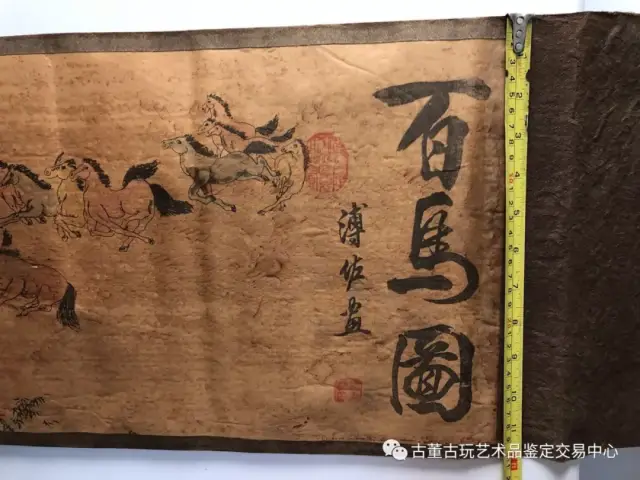 百馬圖
溥佐畫
古董古玩艺术品鉴定交易中心